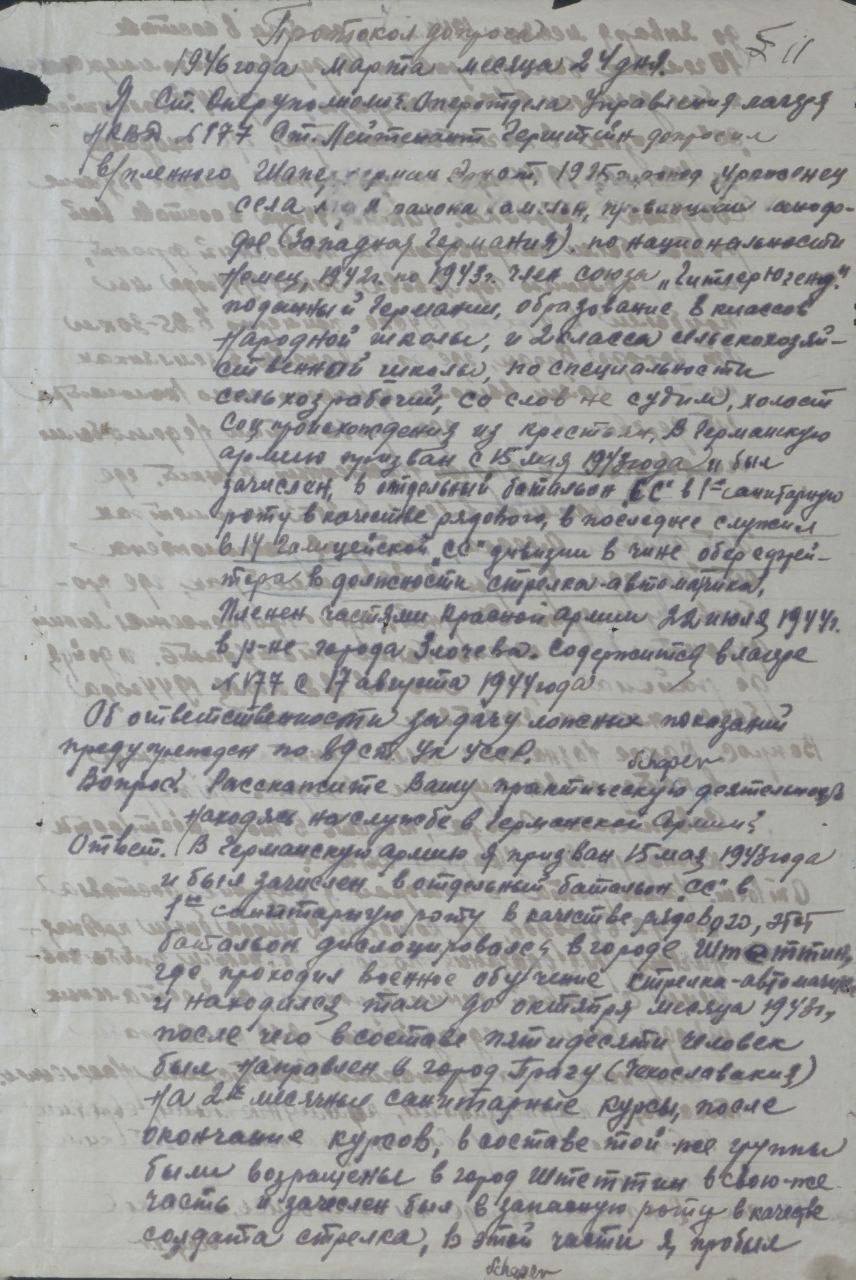 Протокол допроса
11
1946 года марта месяца 24 дня.
Я Ст. Оперуполномоч. Оперотдела Управления лагеря
НКВД №177 Ст. Лейтенант Герштейн допросил
в/пленного Шапер Эрнст, 1925 г. рожд. уроженец
села района провинции
(Западная Германия). по национальности
Немец, 1942г. по 1943г. член союза „Гитлерюгенд".
подданный Германии, образование 8 классов
народной школы, и 2 класса сельскохозяй-
ственной школы, по специальности
сельхозрабочий, со слов не судим, холост
соц происхождения из крестьян, В Германскую
армию призван с 15 мая 1943 года и был
зачислен, в отдельный батальон „СС" в 1ую санитарную
роту в качестве рядового, в последнее служил
в 14 Галицейской „СС" дивизии в чине обер ефрей-
тора в должности стрелка-автоматчика,
Пленен частями Красной армии 22 июля 1944г.
в р-не города Злочева. Содержится в лагере
№177 с 17 августа 1944 года
Об ответственности за дачу ложных показаний
предупрежден по ст. УК УССР.
Schaper
Вопрос. Расскажите Вашу практическую деятельность
находясь на службе в Германской Армии?
Ответ. В Германскую армию я призван 15 мая 1943 года
и был зачислен в отдельный батальон „СС" в
1ую санитарную роту в качестве рядового, этот
батальон дислоцировался в городе Штеттин,
где проходил военное обучение стрелка-автоматчика
и находился там до октября месяца 1943г,
после чего в составе пятидесяти человек
был направлен в город Прагу (Чехославакия)
на 2х месячные санитарные курсы, после
окончание курсов, в составе той-же группы
были возращены в город Штеттин в свою-же
часть и зачеслен был в запасную роту в качестве
солдата стрелка, в этой части я пробыл
Schaper